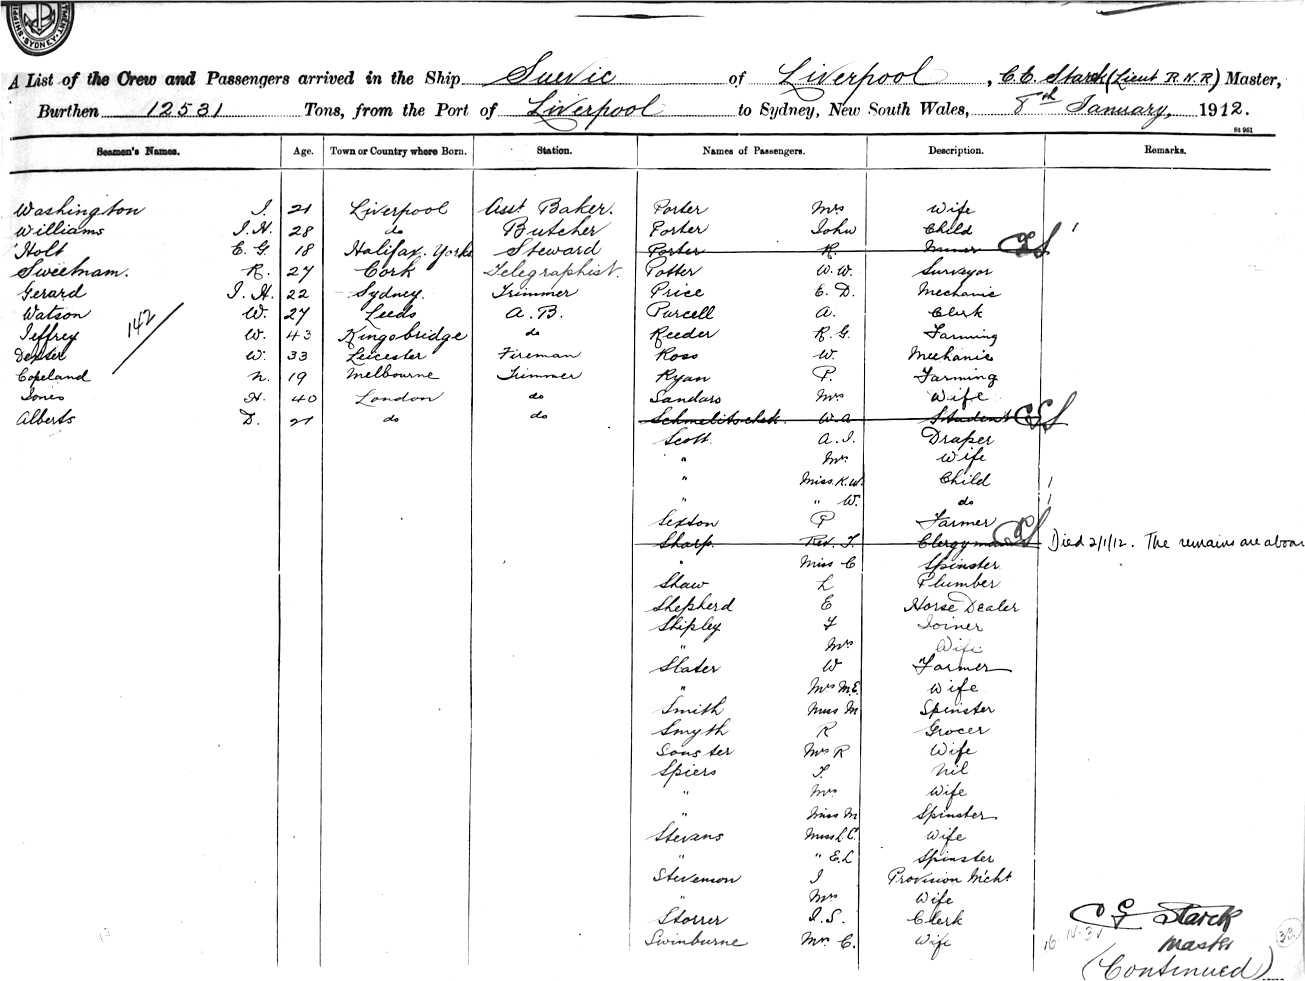 SYDNEY
A List of the Crew and Passengers arrived in the Ship Suevic of Liverpool, C.E. Starck (Lieut R.N.R) Master,
Burthen 12531 Tons, from the Port of Liverpool to Sydney, New South Wales, 8th January, 1912.
Seamen's Names. Age. Town or Country where Born. Station. Names of Passengers. Description. Remarks.
Washington J. 21 Liverpool Asst Baker. Porter Mrs Wife
Williams J.H. 28 do Butcher Porter John Child 1
Holt E. G. 18 Halifax, Yorks Steward Porter R. Miner CES
Sweetnam. R. 27 Cork Telegraphist. Potter W. W. Surveyor
Gerard J. H. 22 Sydney. Trimmer Price E. D. Mechanic
Watson W. 27 Leeds A. B. Purcell A. Clerk
142
Jeffrey W. 43 Kingsbridge do Reeder R. G. Farming
Dexter W. 33 Leicester Fireman Ross W. Mechanic
Copeland N. 19 Melbourne Trimmer Ryan P. Farming
Jones H. 40 London do Sandars Mrs Wife
Alberts D. 21 do do W.A Student CES
Scott A. J. Draper
" Mrs Wife
" Miss K.W. Child 1
" " W. do 1
Sexton P Farmer
Sharp. Rev. T. Clergyman CES Died 2/1/12. The remains are aboar
" Miss C Spinster
Shaw L Plumber
Shepherd E Horse Dealer
Shipley F Joiner
" Mrs Wife
Slater W Farmer
" Mrs M.E. Wife
Smith Miss M Spinster
Smyth R Grocer
Souster Mrs R Wife
Spiers T. Nil
" Mrs Wife
" Miss M Spinster
Stevans Miss L C. Wife
" " E.L Spinster
Stevenson J Provision Mcht
" Mrs Wife
Storrer J. S. Clerk C E Starck
Swinburne Mrs C. Wife 16 Master 33
(Continued)